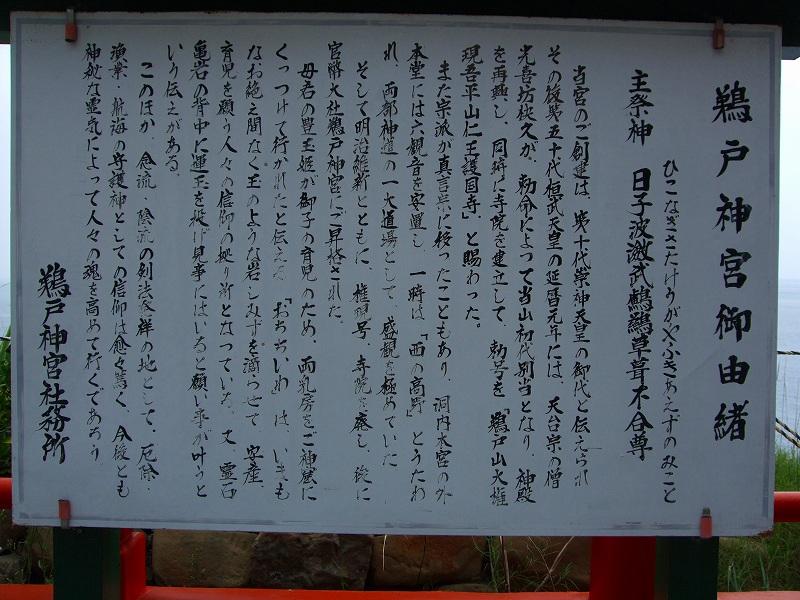 鵜戸神宮御由緒
ひこなぎさたけうがやふきあえずのみこと
主祭神　日子波瀲武鸕鷀草葺不合尊
当宮のご創建は、第十代崇神天皇の御代と伝えられ
その後第五十代桓武天皇の延暦元年には、天台宗の僧
光喜坊快久が、勅命によって当山初代別当となり、神殿
を再興し、同時に寺院を建立して、勅号を「鵜戸山大権
現吾平山仁王護国寺」と賜わった。
また宗派が真言宗に移ったこともあり、洞内本宮の外
本堂には六観音を安置し、一時は、「西の高野」とうたわ
れ、両部神道の一大道場として、盛観を極めていた
そして明治維新とともに、権現号、寺院を廃し、後に
官幣大社鵜戸神宮にご昇格された。
母君の豊玉姫が御子の育児のため、両乳房をご神窟に
くっつけて行かれたと伝える「おちちいわ」は、いまも
なお絶え間なく玉のような岩しみずを滴らせて、安産、
育児を願う人々の信仰の拠り所となっている。又、霊石
亀岩の背中に運玉を投げ見事にはいると願い事が叶うと
いう伝えがある。
このほか、念流、陰流の剣法発祥の地として、厄除、
漁業・航海の守護神としての信仰は愈々篤く、今後とも
神秘な霊気によって人々の魂を高めて行くであろう。
鵜戸神宮社務所